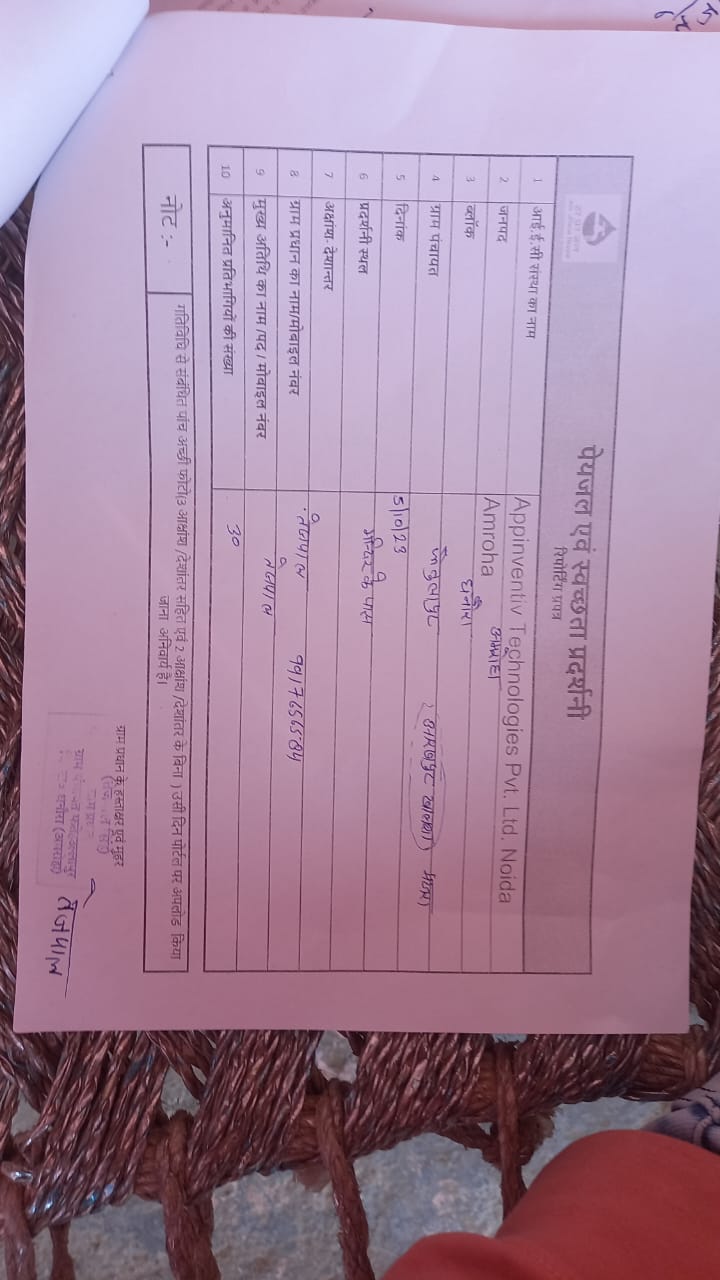 पेयजल एवं स्वच्छता प्रदर्शनी
रिपोर्टिंग प्रपत्र
1 आई.ई.सी संस्था का नाम Appinventiv Technologies Pvt. Ltd. Noida
2 जनपद Amroha
3 ब्लॉक धनौरा
4 ग्राम पंचायत
5 दिनांक 5/10/23
6 प्रदर्शनी स्थल मन्दिर के पास
7 अक्षांश- देशान्तर
8 ग्राम प्रधान का नाम/मोबाइल नंबर तेजपाल 9917656584
9 मुख्य अतिथि का नाम /पद / मोबाइल नंबर तेजपाल
10 अनुमानित प्रतिभागियों की संख्या 30
नोट :- गतिविधि से संबंधित पांच अच्छी फोटो(3 आक्षांश /देशांतर सहित एवं 2 आक्षांश /देशांतर के बिना ) उसी दिन पोर्टल पर अपलोड किया
जाना अनिवार्य है।
ग्राम प्रधान के हस्ताक्षर एवं मुहर
तेजपाल